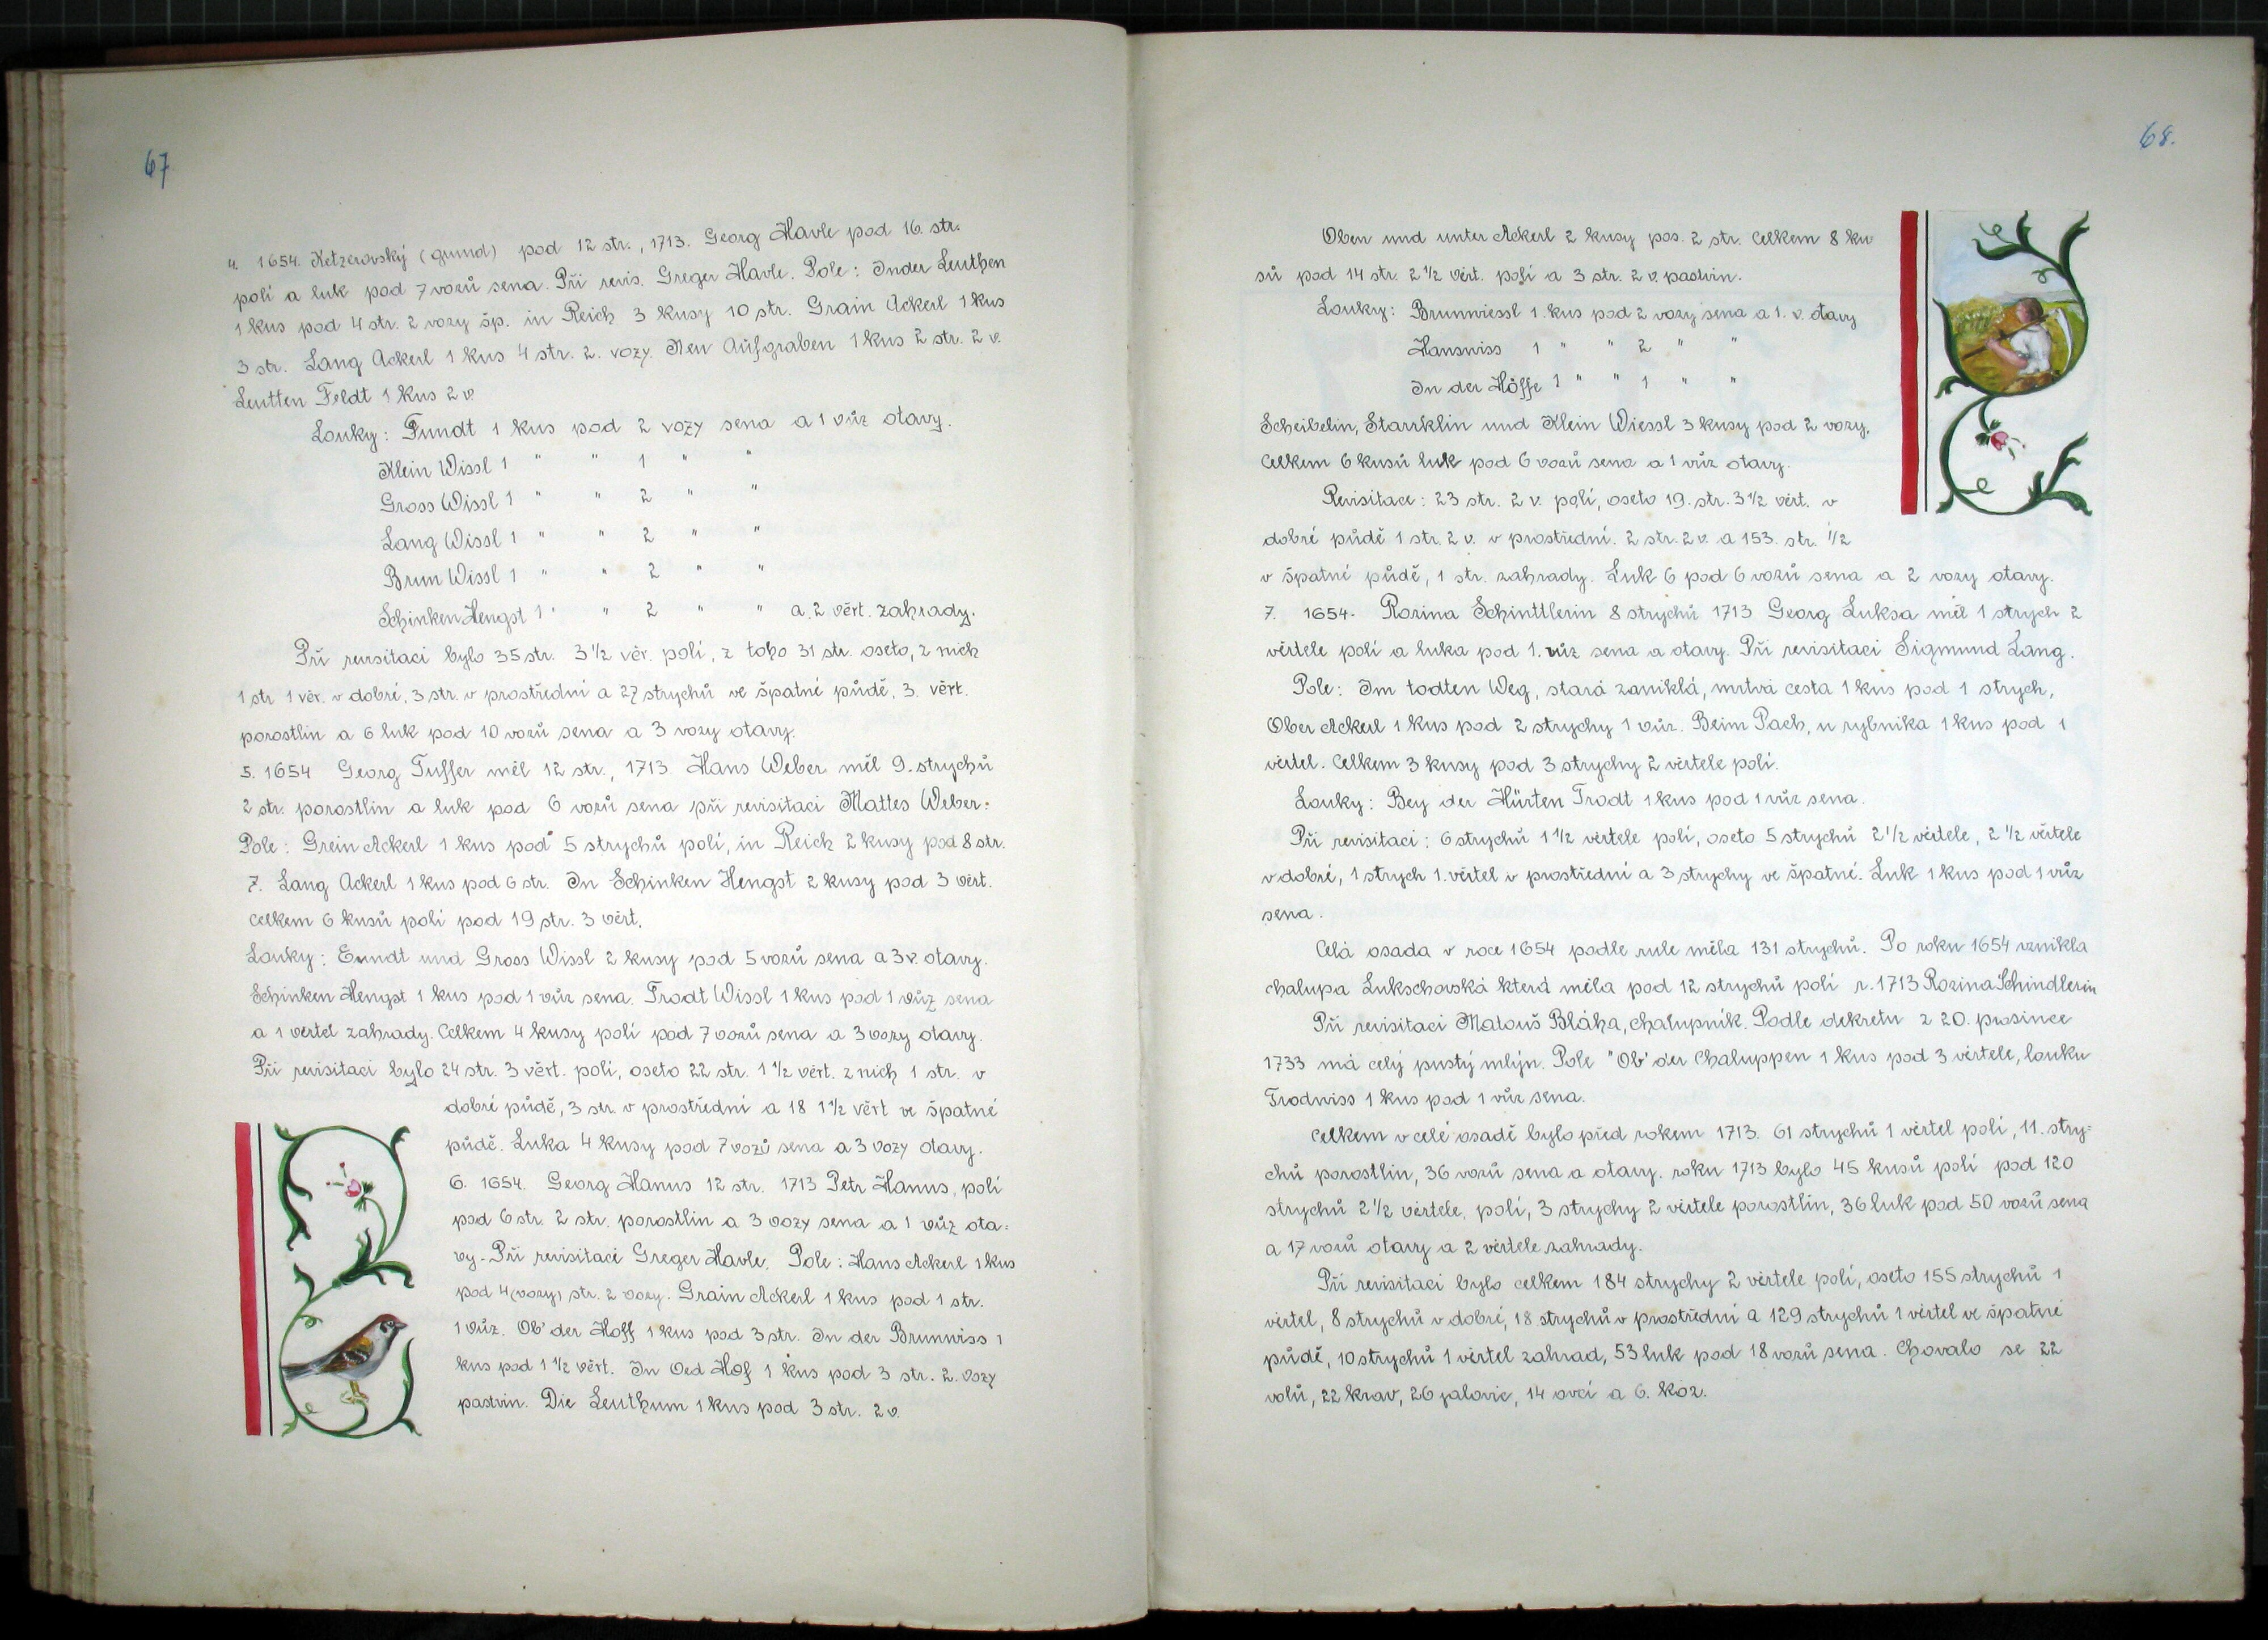 67
4. 1654. Ketzerovský (grund) pod 12 str., 1713. Georg Havle pod 16. str.
polí a luk pod 7 vozů sena. Při revis. Greger Havle. Pole: Inder Leuthen
1 kus pod 4 str. 2 vozy šp. in Reich 3 kusy 10 str. Grain Ackerl 1 kus
3 str. Lang Ackerl 1 kus 4 str. 2. vozy. Neu Aufgraben 1 kus 2 str. 2 v.
Leutten Feldt 1 kus 2 v.
Louky: Fundt 1 kus pod 2 vozy sena a 1 vůz otavy.
Klein Wissl 1 " " 1 " "
Gross Wissl 1 " " 2 " "
Lang Wissl 1 " " 2 " "
Brun Wissl 1 " " 2 " "
Schinken Hengst 1 " " 2 " " a 2 věrt. zahrady.
Při revisitaci bylo 35 str. 3 1/2 věr. polí, z toho 31 str. oseto, z nich
1 str 1 věr. v dobré, 3 str. v prostřední a 27 strychů ve špatné půdě, 3. věrt.
porostlin a 6 luk pod 10 vozů sena a 3 vozy otavy.
5. 1654 Georg Tuffer měl 12 str., 1713. Hans Weber měl 9. strychů
2 str. porostlin a luk pod 6 vozů sena při revisitaci Mattes Weber:
Pole: Grein Ackerl 1 kus pod 5 strychů polí, in Reich 2 kusy pod 8 str.
7. Lang Ackerl 1 kus pod 6 str. In Schinken Hengst 2 kusy pod 3 věrt.
celkem 6 kusů polí pod 19 str. 3 věrt.
Louky: Eundt und Gross Wissl 2 kusy pod 5 vozů sena a 3 v. otavy.
Schinken Hengst 1 kus pod 1 vůz sena. Trodt Wissl 1 kus pod 1 vůz sena
a 1 věrtel zahrady. Celkem 4 kusy polí pod 7 vozů sena a 3 vozy otavy.
Při revisitaci bylo 24 str. 3 věrt. polí, oseto 22 str. 1 1/2 věrt. z nich 1 str. v
dobré půdě, 3 str. v prostřední a 18 1 1/2 věrt ve špatné
půdě. Luka 4 kusy pod 7 vozů sena a 3 vozy otavy.
6. 1654. Georg Hanus 12 str. 1713 Petr Hanus, polí
pod 6 str. 2 str. porostlin a 3 vozy sena a 1 vůz ota=
vy. Při revisitaci Greger Havle. Pole: Hans Ackerl 1 kus
pod 4 (vozy) str. 2 vozy. Grain Ackerl 1 kus pod 1 str.
1 vůz. Ob' der Hoff 1 kus pod 3 str. In der Brunwiss 1
kus pod 1 1/2 věrt. In Oed Hof 1 kus pod 3 str. 2. vozy
pastvin. Die Leuthum 1 kus pod 3 str. 2 v.
68.
Oben und unter Ackerl 2 kusy pos. 2 str. Celkem 8 ku
sů pod 14 str. 2 1/2 věrt. polí a 3 str. 2 v. pastvin.
Louky: Brunnviessl 1. kus pod 2 vozy sena a 1. v. otavy
Hanswiss 1 " " 2 " "
In der Höffe 1 " " 1 " "
Scheibelin, Starrklin und Klein Wiessl 3 kusy pod 2 vozy.
Celkem 6 kusů luk pod 6 vozů sena a 1 vůz otavy.
Revisitace: 23 str. 2 v. polí, oseto 19. str. 3 1/2 věrt. v
dobré půdě 1 str. 2 v. v prostřední. 2 str. 2 v. a 153. str. 1/2
v špatné půdě, 1 str. zahrady. Luk 6 pod 6 vozů sena a 2 vozy otavy.
7. 1654. Rozina Schinttlerin 8 strychů 1713 Georg Luksa měl 1 strych 2
věrtele polí a luka pod 1. vůz sena a otavy. Při revisitaci Sigmund Lang.
Pole: Im todten Weg, stará zaniklá, mrtvá cesta 1 kus pod 1 strych,
Ober Ackerl 1 kus pod 2 strychy 1 vůz. Beim Pach, u rybníka 1 kus pod 1
věrtel. Celkem 3 kusy pod 3 strychy 2 věrtele polí.
Louky: Bey der Hürten Trodt 1 kus pod 1 vůz sena.
Při revisitaci: 6 strychů 1 1/2 věrtele polí, oseto 5 strychů 2 1/2 věrtele, 2 1/2 věrtele
v dobré, 1 strych 1. věrtel v prostřední a 3 strychy ve špatné. Luk 1 kus pod 1 vůz
sena.
Celá osada v roce 1654 podle rule měla 131 strychů. Po roku 1654 vznikla
chalupa Lukschovská která měla pod 12 strychů polí r. 1713 Rozina Schindlerin
Při revisitaci Matouš Bláha, chalupník. Podle dekretu z 20. prosince
1733 má celý pustý mlýn. Pole "Ob' der Chaluppen 1 kus pod 3 věrtele, louku
Trodwiss 1 kus pod 1 vůz sena.
Celkem v celé osadě bylo před rokem 1713. 61 strychů 1 věrtel polí, 11. stry=
chů porostlin, 36 vozů sena a otavy. roku 1713 bylo 45 kusů polí pod 120
strychů 2 1/2 věrtele. polí, 3 strychy 2 věrtele porostlin, 36 luk pod 50 vozů sena
a 17 vozů otavy a 2 věrtele zahrady.
Při revisitaci bylo celkem 184 strychy 2 věrtele polí, oseto 155 strychů 1
věrtel, 8 strychů v dobré, 18 strychů v prostřední a 129 strychů 1 věrtel ve špatné
půdě, 10 strychů 1 věrtel zahrad, 53 luk pod 18 vozů sena. Chovalo se 22
volů, 22 krav, 26 jalovic, 14 ovcí a 6. koz.